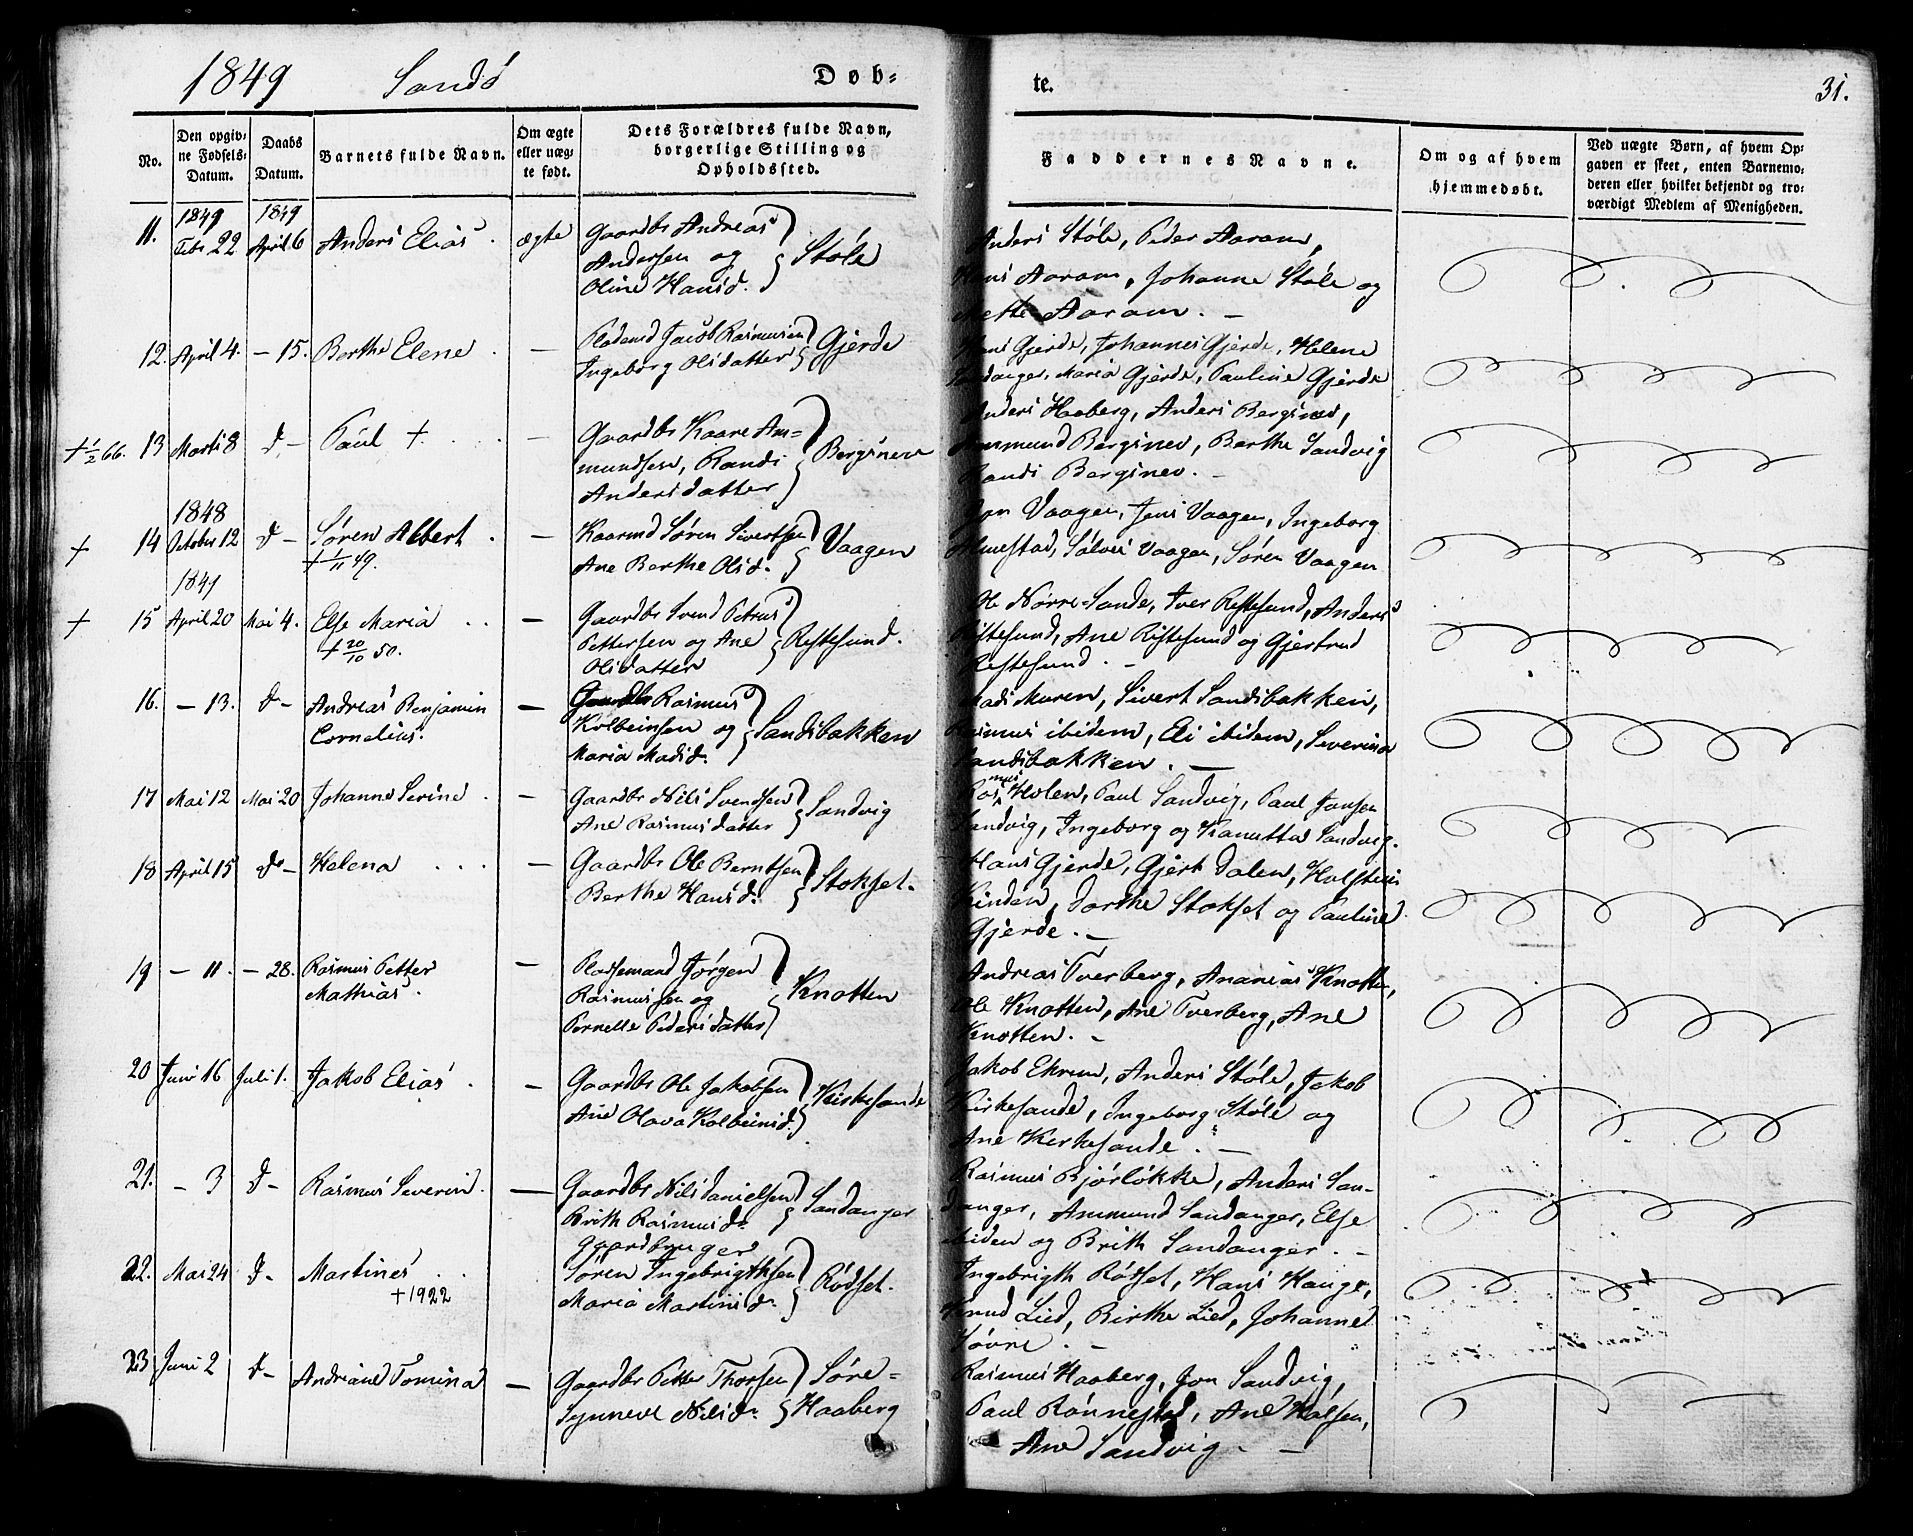 1849 Sandö Døb-
te. 31.
No.
Den opgiv-
ne Fødsels-
Datum.
Daabs
Datum.
Barnets fulde Navn.
Om ægte
eller uæg-
te født.
Dets Forældres fulde Navn,
borgerlige Stilling og
Opholdssted.
Faddernes Navne.
Om og af hvem
hjemmedøbt.
Ved uægte Børn, af hvem Op-
gaven er skeet, enten Barnemo-
deren eller hvilket bekjendt og tro-
værdigt Medlem af Menigheden.
1849 1849
11. Febr 22 April 6 Anders Elias. ægte Gaardbr Andreas
Andersen og
Oline Hansd. Støle
Anders Støle, Peder Aaram,
Hans Aaram, Johanne Støle og
Mette Aaram. —
12. April 4. — 15. Berthe Elene. — Pladsmd Jacob Rasmusen
Ingeborg Olsdatter Gjerde
Hans Gjerde, Johannes Gjerde, Helene
Sandanger, Maria Gjerde, Pauline Gjerde
+ 1/2 66. 13 Marts 8 d— Paul +. — Gaardbr Kaare Am-
mundsen, Randi
Andersdatter Bergsnev
Anders Haaberg, Anders Bergsnev,
Ammund Bergsnev, Berthe Sandvig
Randi Bergsnev. —
1848
+ 14 October 12 d— Søren Albert. — Kaarmd Søren Sivertsen
+ 1/11 49. Ane Berthe Olsd. Vaagen
Jon Vaagen, Jens Vaagen, Ingeborg
Almestad, Sølvei Vaagen, Søren Vaagen
1849
+ 15 April 20 Mai 4. Else Maria — Gaardbr Svend Petrus
+ 20/10 50. Pettersen og Ane
Olsdatter Røstesund.
Ole Nørre-Sande, Iver Røstesund, Anders
Røstesund, Ane Røstesund og Gjertrud
Røstesund. —
16. — 13. d— Andreas Benjamin
Cornelius. — Gaardbr Rasmus
Kolbeinsen og
Maria Madsd. Sandsbakken
Mads Muren, Sivert Sandsbakken,
Rasmus ibidem, Eli ibidem, Severina
Sandsbakken. —
17 Mai 12 Mai 20 Johanne Serine. — Gaardbr Nils Svendsen
Ane Rasmusdatter Sandvig
Rasmus Holen, Paul Sandvig, Paul Jonsen
Sandvig, Ingeborg og Kanutta Sandvig.
18 April 15 do— Helena — Gaardbr Ole Berntsen
Berthe Hansd. Stokset.
Hans Gjerde, Gjert Dalen, Holsteen
Kinden, Dorthe Stokset og Pauline
Gjerde. —
19 — 11. — 28. Rasmus Petter
Mathias. — Pladsemand Jørgen
Rasmussen og
Pernelle Pedersdatter Knotten
Andreas Tverberg, Ananias Knotten,
Ole Knotten, Ane Tverberg, Ane
Knotten. —
20 Juni 16 Juli 1. Jakob Elias. — Gaardbr Ole Jakobsen
Ane Olava Kolbeinsd. Kirkesande
Jakob Ekrem, Anders Støle, Jakob
Kirkesande, Ingeborg Støle og
Ane Kirkesande. —
21. — 3 d— Rasmus Severin. — Gaardbr Nils Danielsen
Brith Rasmusd. Sandanger
Rasmus Bjørløkke, Anders San-
danger, Ammund Sandanger, Else
ibiden og Brith Sandanger. —
22. Mai 24 d— Martines
+ 1922 Gaardbruger
Søren Ingebrigthsen
Maria Martinsd. Rödset.
Ingebrigth Rötset, Hans Hauge,
Knud Lied, Birthe Lied, Johanne
Søvre. —
23 Juni 2 d— Andriane Tomina — Gaardbr Petter Thorsen
Synneve Nilsd. Søre-
Haaberg
Rasmus Haaberg, Jon Sandvig,
Paul Rønnestad, Ane Kalsen,
Ane Sandvig. —